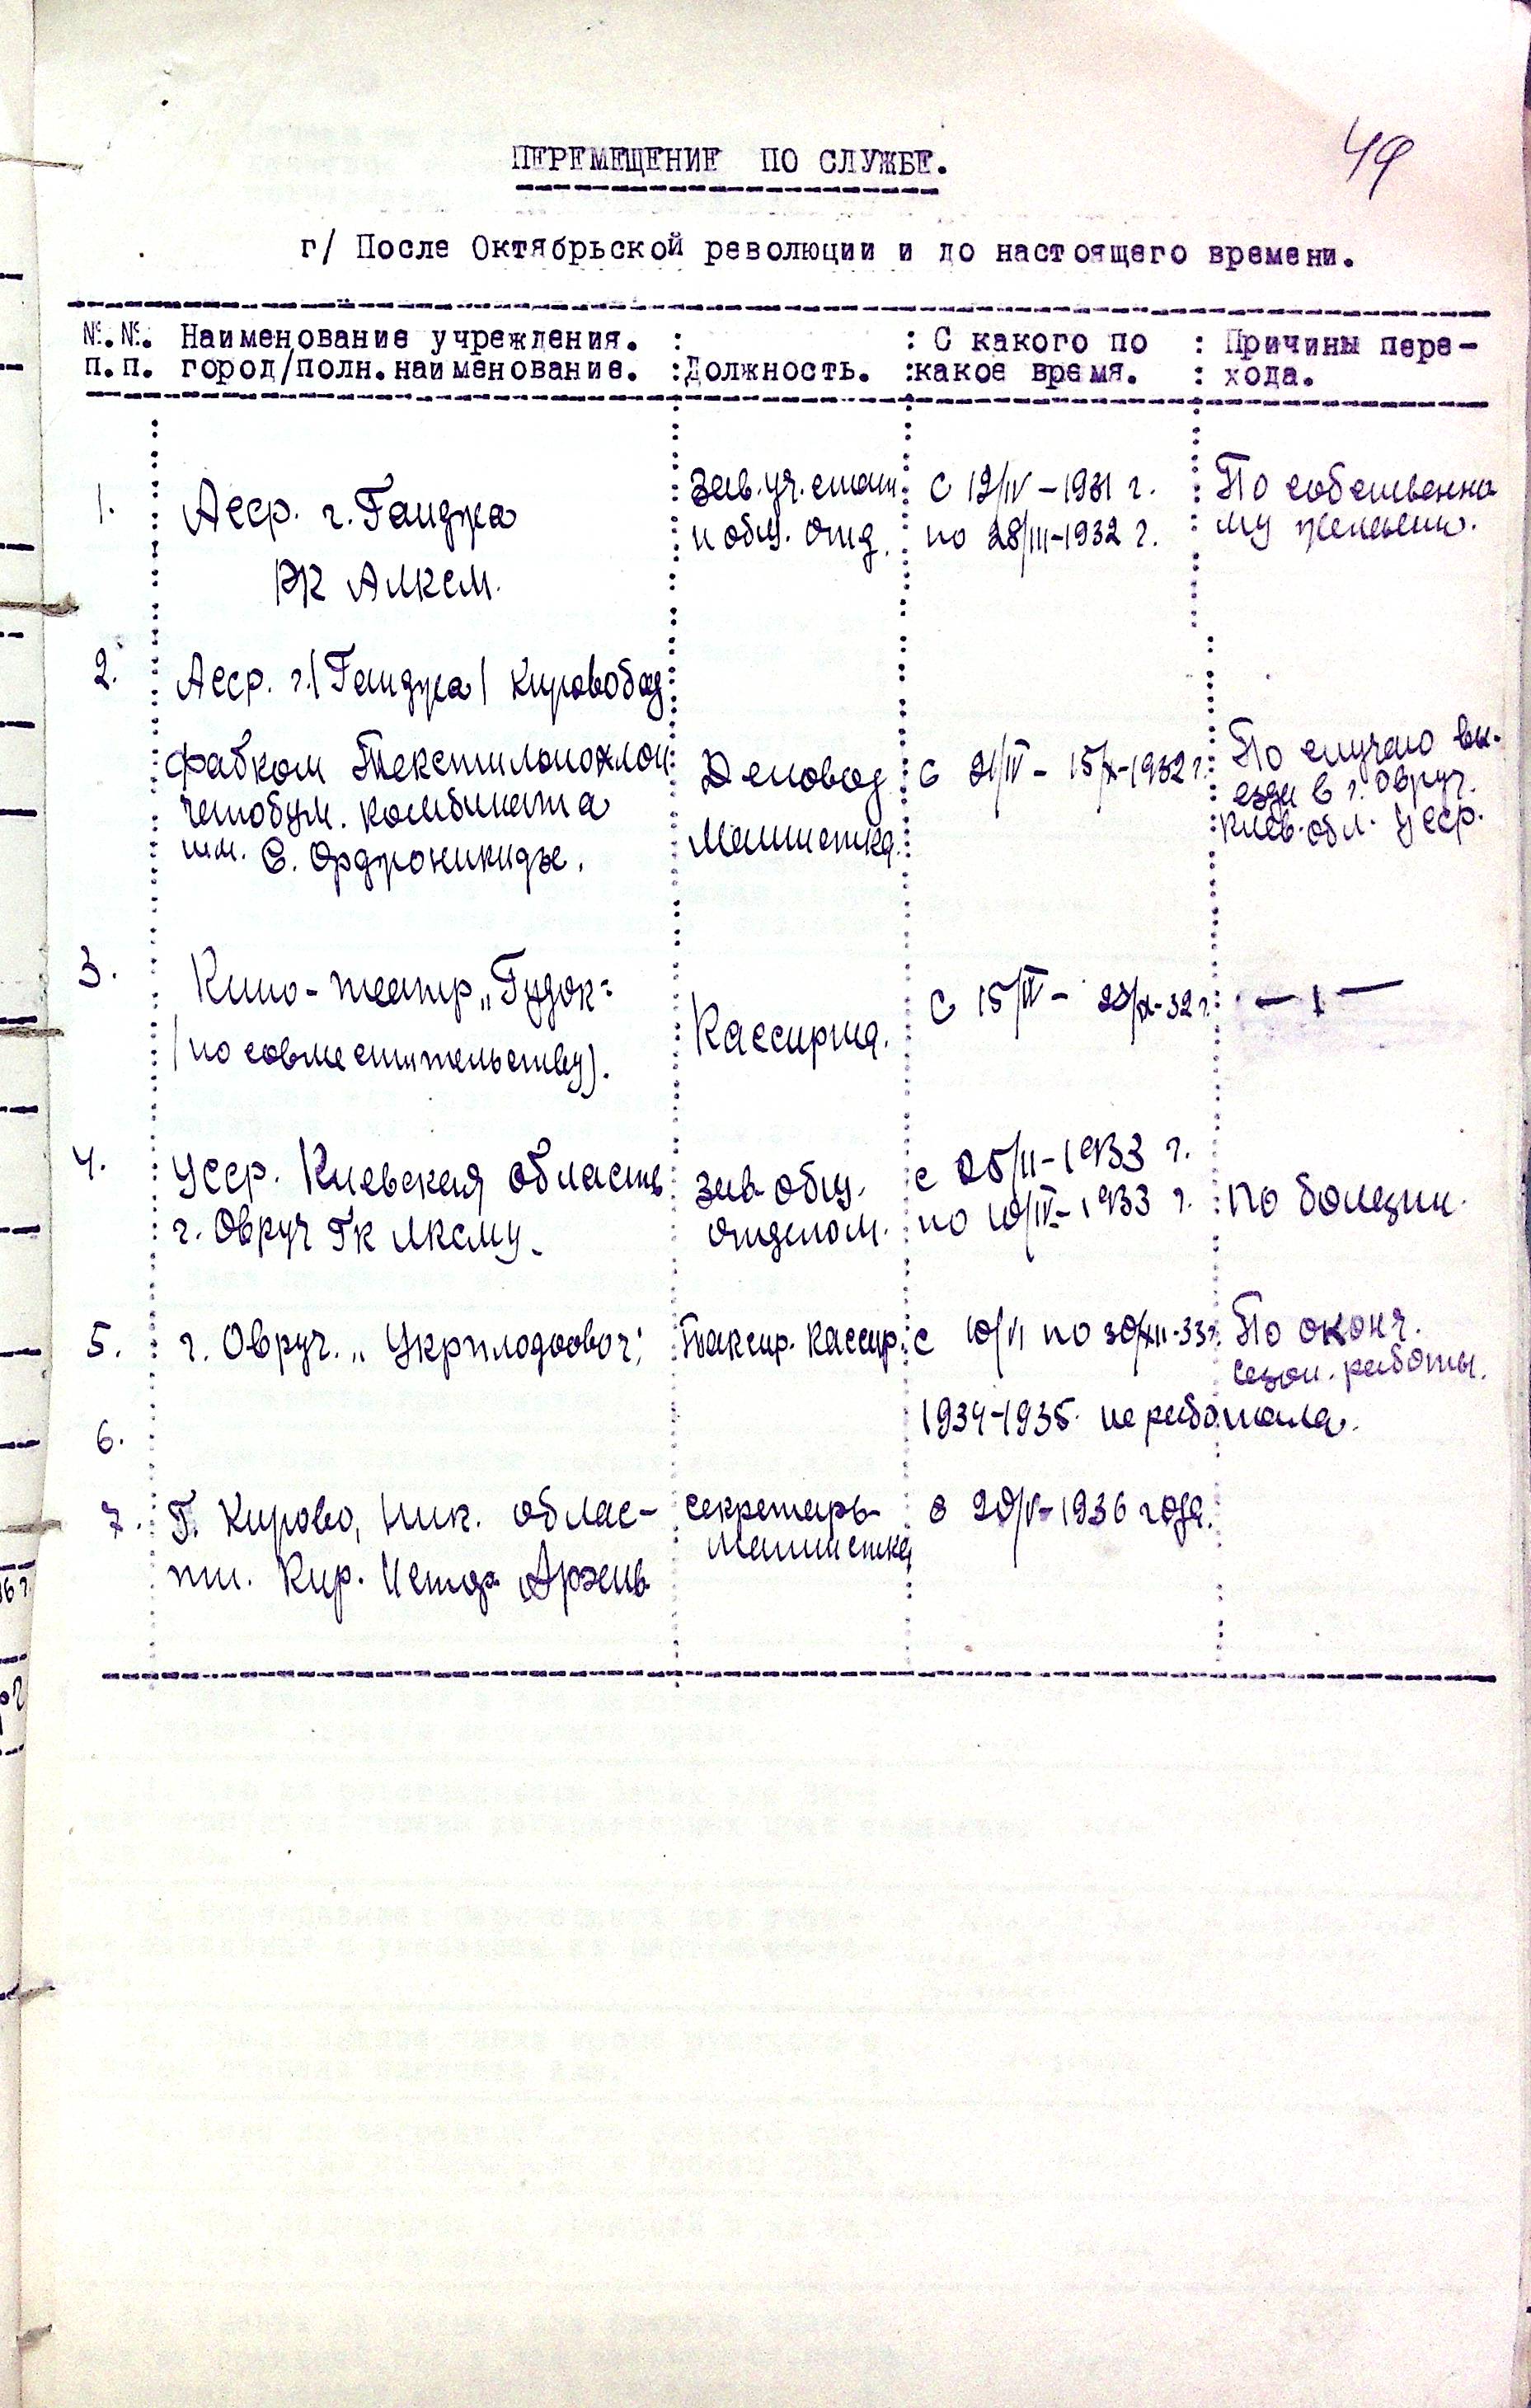 49
ПЕРЕМЕЩЕНИЕ ПО СЛУЖБЕ.
г/ После Октябрьской революции и до настоящего времени.
№.№. Наименование учреждения. : : С какого по : Причины пере-
п.п. город/полн.наименование. :Должность. :какое время. : хода.
1. Асср. г. Ганджа
РК АЛКСМ.
Зав. уч. стат.
и общ. отд.
С 12/IV – 1931 г.
по 28/III-1932 г.
По собственно
му желанию.
2. Асср. г./Ганджа/ Кировобад
Фабком Текстильно хлоп
чатобум. комбината
им. С. Орджоникидзе.
Деловод
Машистка.
С 21/IV – 15/X-1932 г.
По случаю вы-
езда в г. Овруч.
Киев. обл. Усср.
3. Кино-театр „Гудок"
/по совместительству).
Кассирша.
С 15/IV – 23/X-32 г.
— " —
4. Усср. Киевская область
г. Овруч Гк лксму.
Зав общ.
отделом.
с 25/II-1933 г.
по 10/IV-1933 г.
По болезни.
5. г. Овруч. „Укрплодоовоч"
Таксир. кассир.
с 10/VI по 30/XII-33 г.
По оконч.
сезон. работы.
6. 1934-1935. не работала.
7. Г. Кирово, Ник. облас-
ти. Кир. Истор Архив
секретарь
Машистка
с 20/V-1936 года.